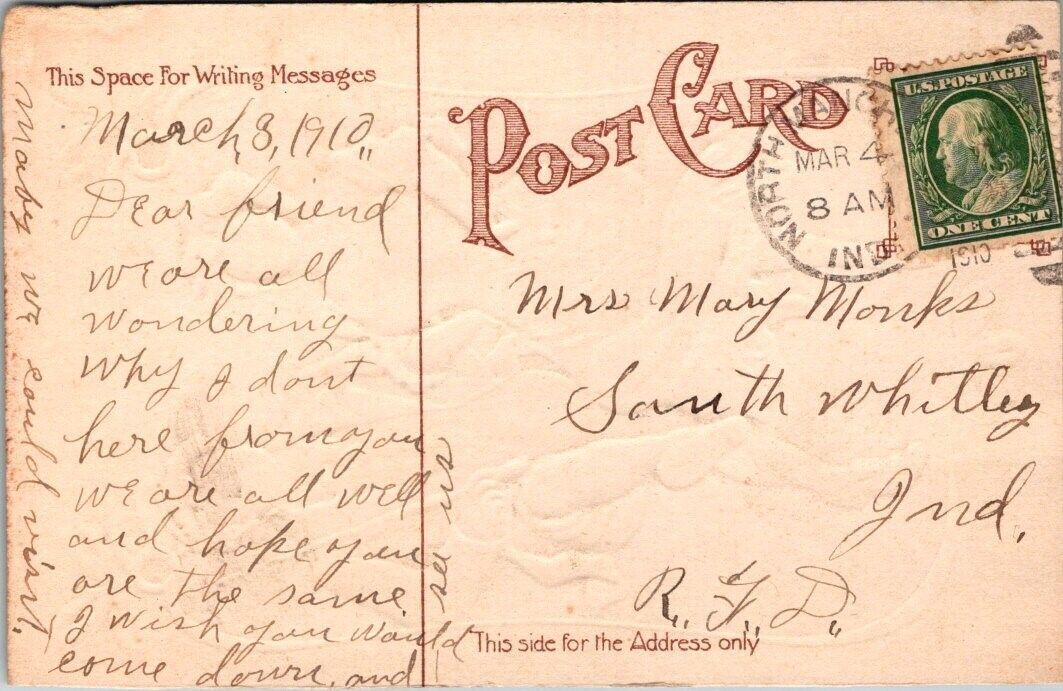 This Space For Writing Messages
March, 3, 1910,,
Dear friend
we are all
wondering
why I dont
here from you
we are all well
and hope you
are the same
I wish you would
come down, and
see us
maby we could visit.
POST CARD
NORTH MANCH
MAR 4
8 AM
IND
1910
U.S. POSTAGE
ONE CENT
Mrs Mary Monks
South Whitley
Ind.
R., F., D.,
This side for the Address only